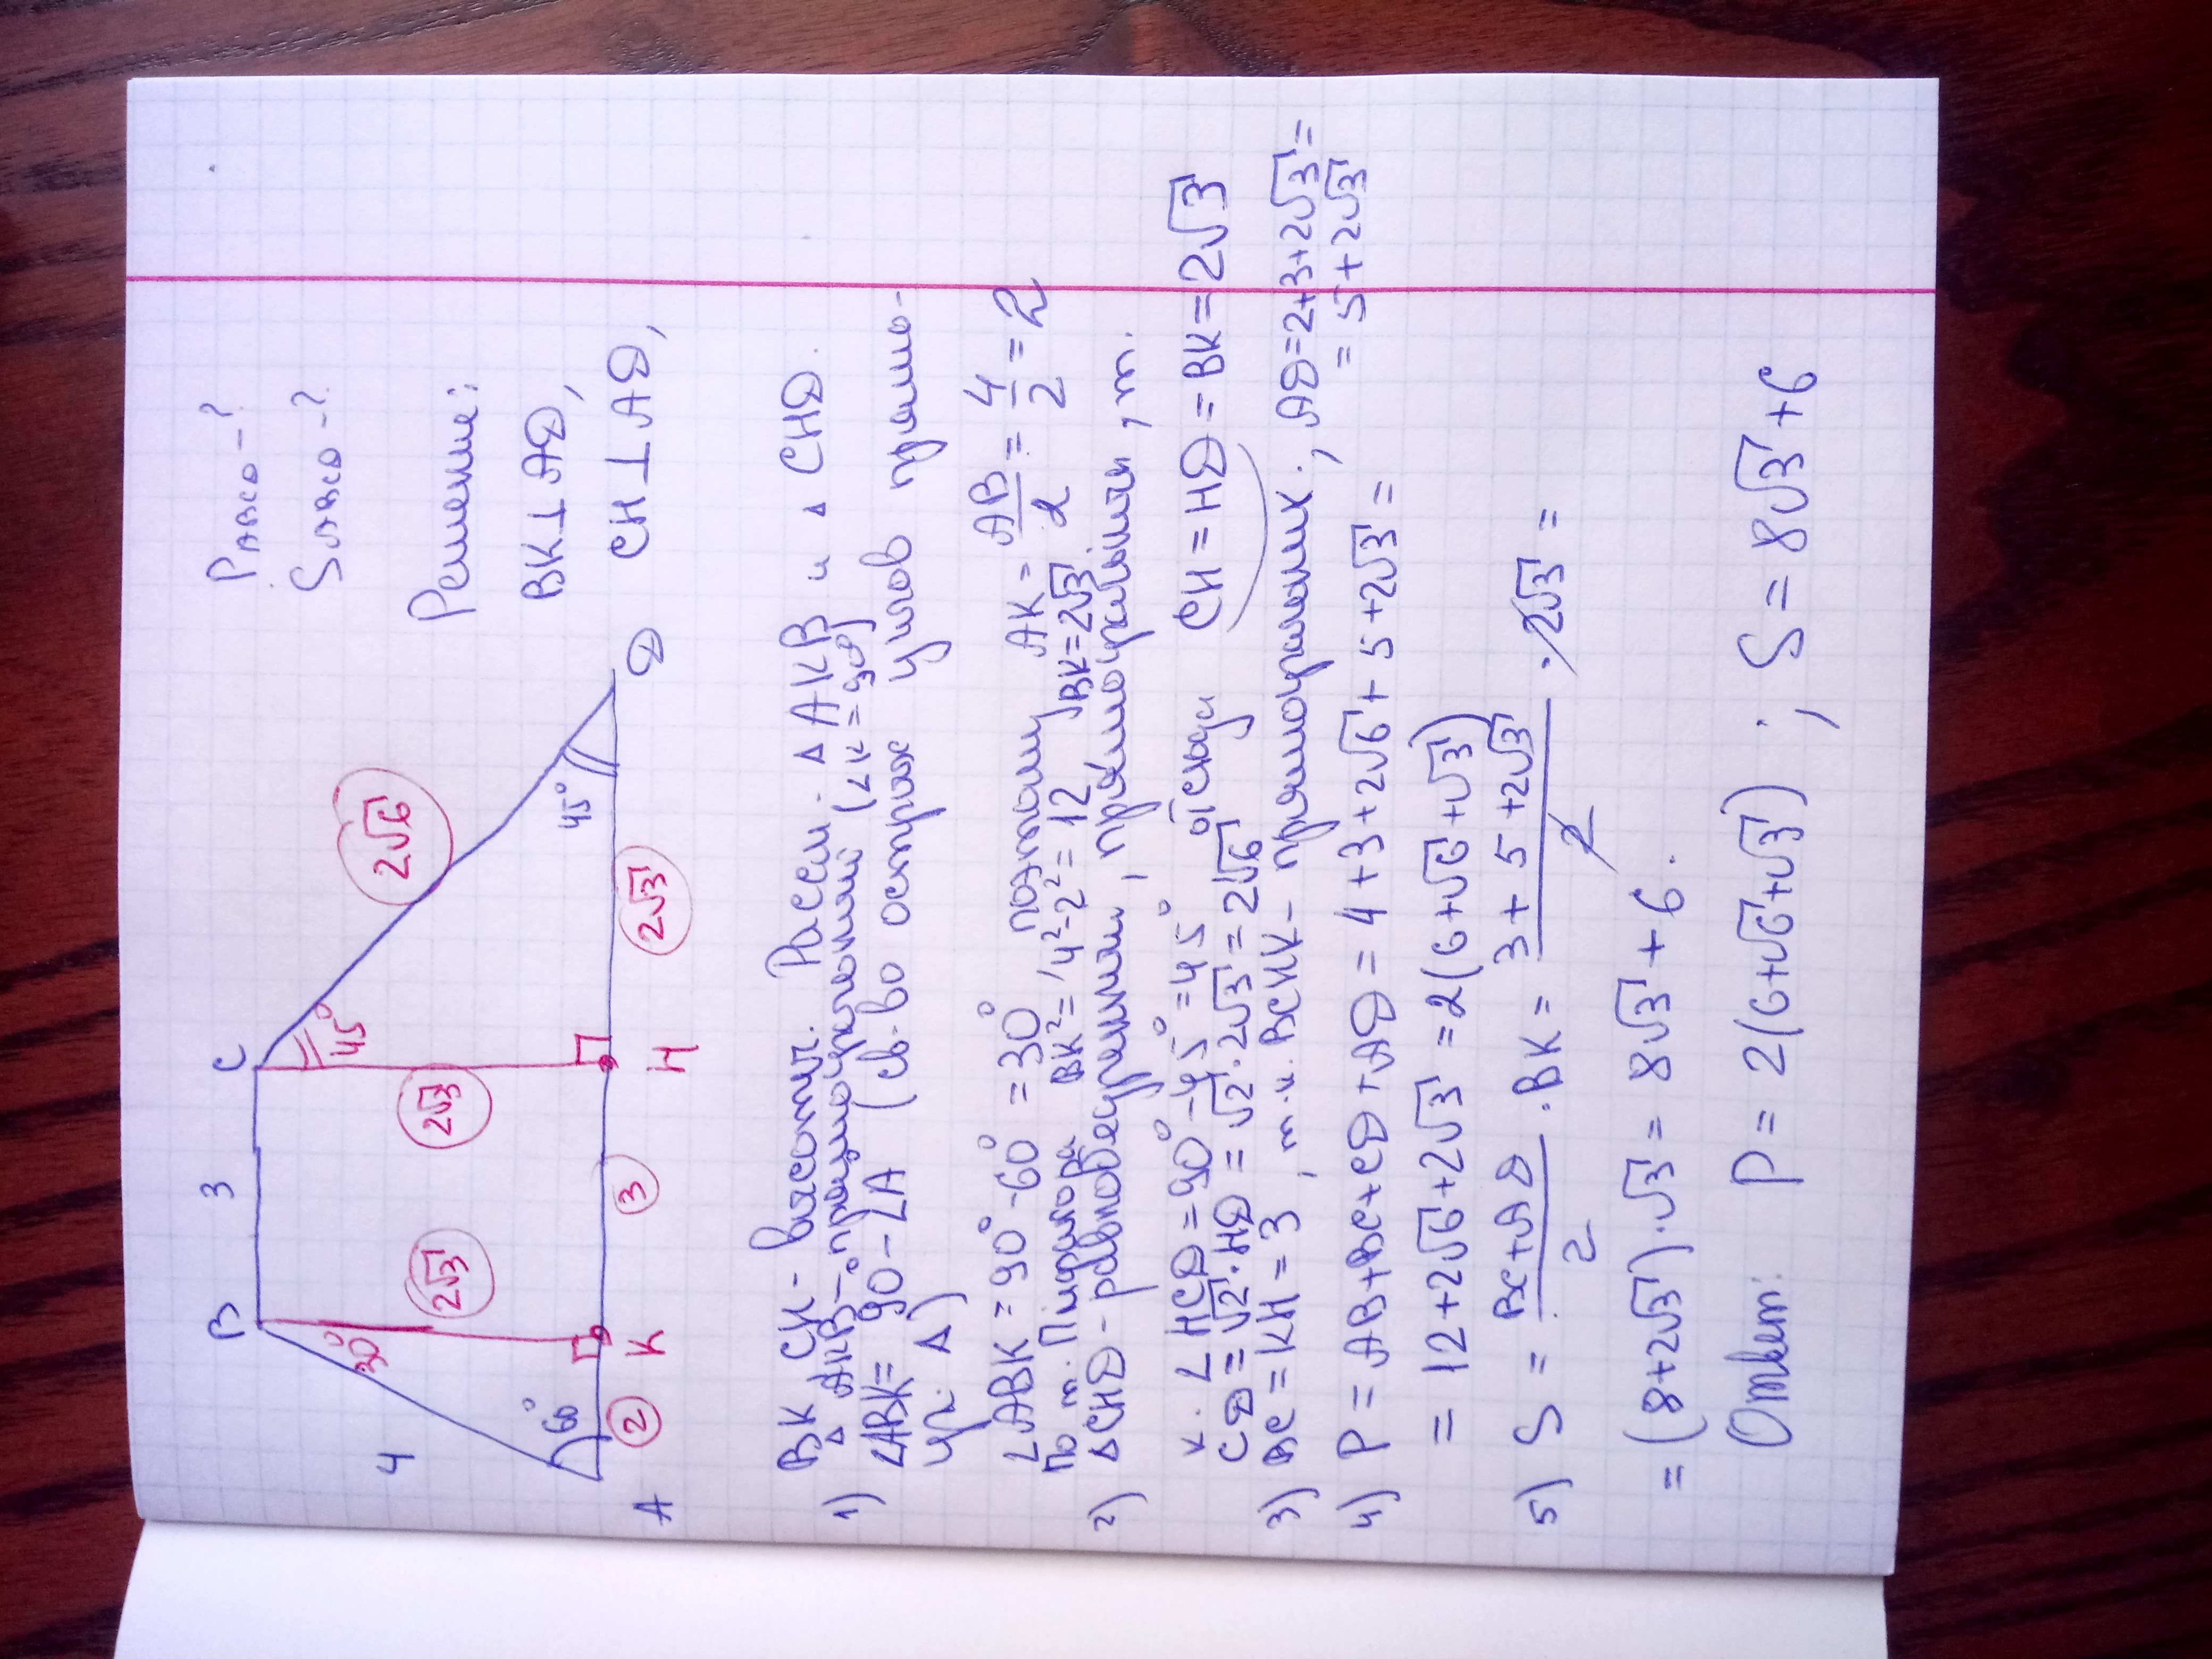 P_ABCD - ?
S_ABCD - ?
B
3
C
4
30°
2√3
2√3
45°
2√6
Решение:
BK ⊥ AD,
CH ⊥ AD,
60°
45°
A
2
K
3
H
2√3
D
BK, CH - высоты. Рассм. △ AKB и △ CHD.
1) △ AKB - прямоугольный (∠K = 90°)
∠ABK = 90° - ∠A (св-во острых углов прямо-
уг. △)
∠ABK = 90° - 60° = 30° поэтому AK = AB/2 = 4/2 = 2
По т. Пифагора BK² = 4² - 2² = 12, BK = 2√3
2) △CHD - равнобедренный, прямоугольный, т.
к. ∠HCD = 90° - 45° = 45° CH = HD = BK = 2√3
CD = √2 · HD = √2 · 2√3 = 2√6
3) BC = KH = 3, т.к. BCHK - прямоугольник; AD = 2 + 3 + 2√3 =
= 5 + 2√3
4) P = AB + BC + CD + AD = 4 + 3 + 2√6 + 5 + 2√3 =
= 12 + 2√6 + 2√3 = 2(6 + √6 + √3)
5) S = (BC + AD)/2 · BK = (3 + 5 + 2√3)/2 · 2√3 =
= (8 + 2√3) · √3 = 8√3 + 6.
Ответ: P = 2(6 + √6 + √3) ; S = 8√3 + 6